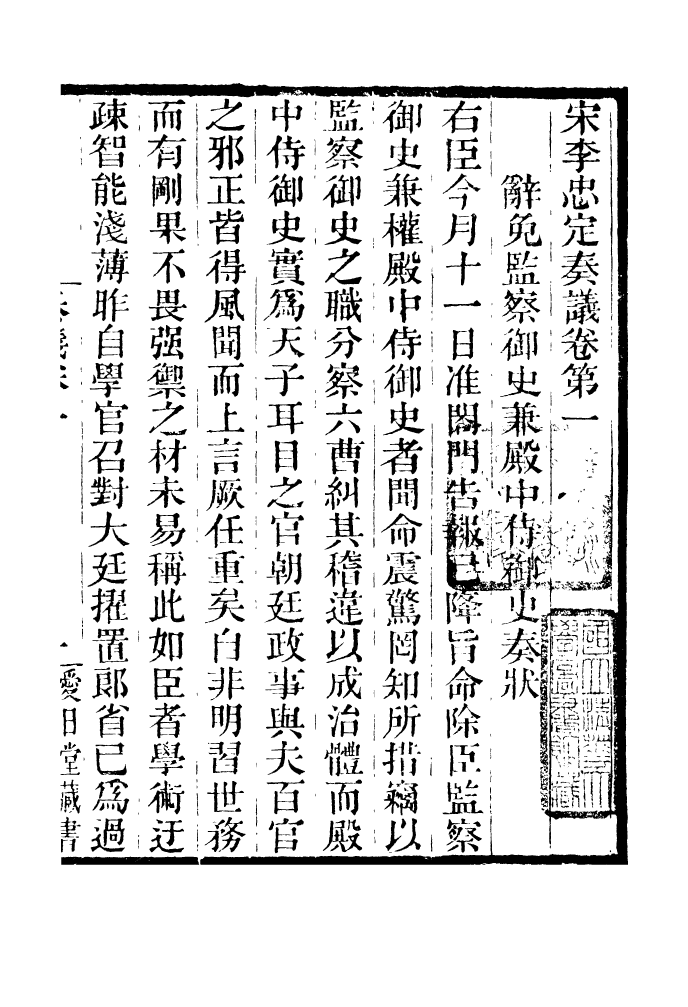 宋李忠定奏議卷第一
辭免監察御史兼殿中侍御史奏狀
右臣今月十一日准閤門告報已降旨命除臣監察
御史兼權殿中侍御史者聞命震驚罔知所措竊以
監察御史之職分察六曹糾其稽違以成治體而殿
中侍御史實爲天子耳目之官朝廷政事與夫百官
之邪正皆得風聞而上言厥任重矣自非明習世務
而有剛果不畏强禦之材未易稱此如臣者學術迂
疎智能淺薄昨自學官召對大廷擢置郎省已爲過
愛日堂藏書